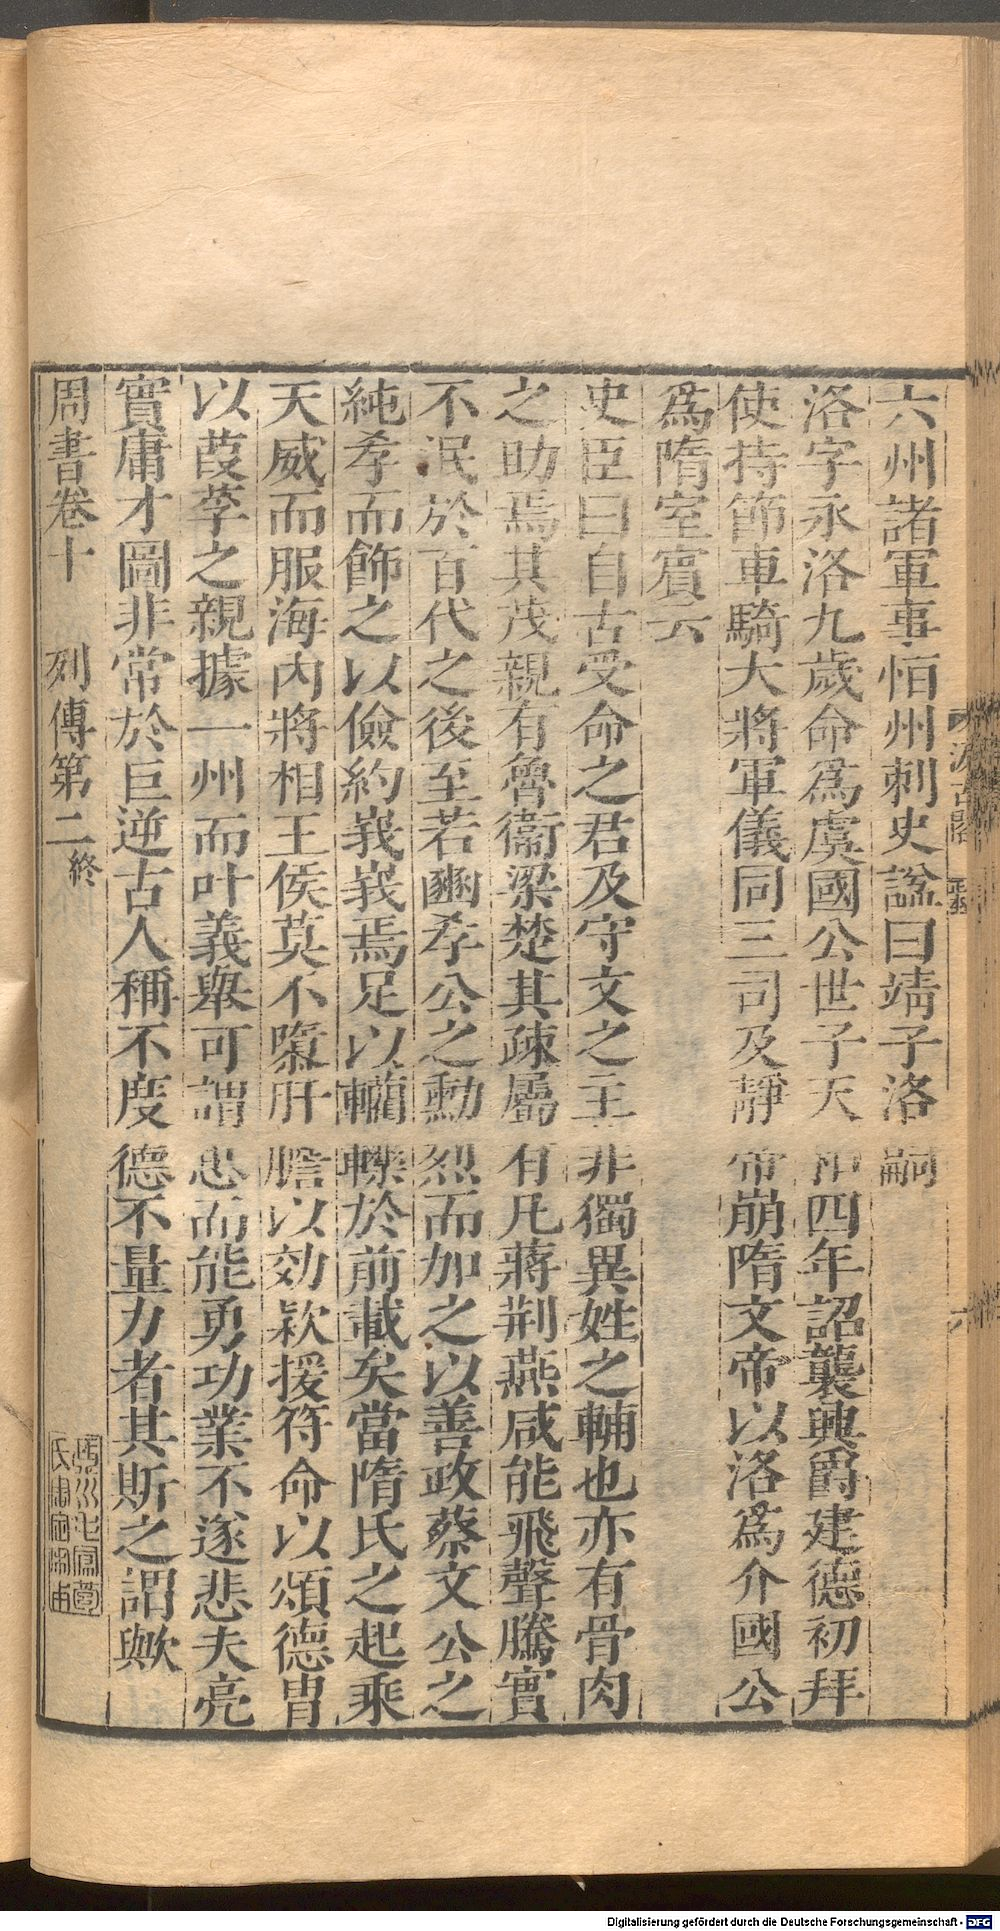 六州諸軍事恒州刺史諡曰靖子洛嗣
洛字永洛九歲命爲虞國公世子天和四年詔襲興爵建德初拜
使持節車騎大將軍儀同三司及靜帝崩隋文帝以洛爲介國公
爲隋室賓云
史臣曰自古受命之君及守文之主非獨異姓之輔也亦有骨肉
之助焉其茂親有魯衞梁楚其疎屬有凡蔣荆燕咸能飛聲騰實
不泯於百代之後至若豳孝公之勳烈而加之以善政蔡文公之
純孝而飾之以儉約峩峩焉足以轥轢於前載矣當隋氏之起乘
天威而服海內將相王侯莫不隳肝膽以効欵援符命以頌德胄
以葭莩之親據一州而叶義舉可謂忠而能勇功業不遂悲夫亮
實庸才圖非常於巨逆古人稱不度德不量力者其斯之謂歟
周書卷十 列傳第二終
汲古閣
六
Digitalisierung gefördert durch die Deutsche Forschungsgemeinschaft - DFG